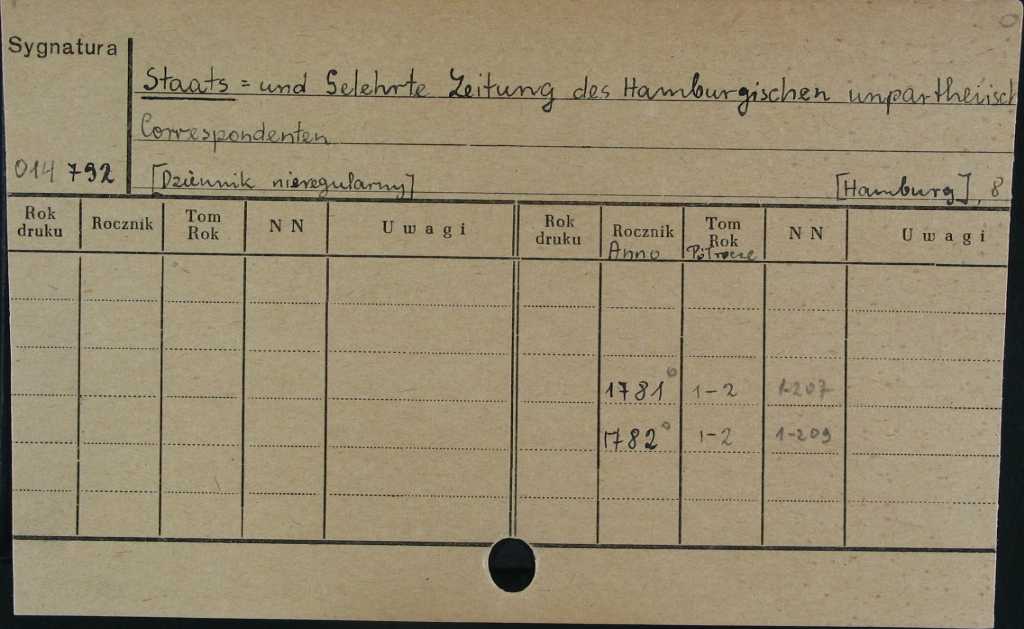 Sygnatura
Staats = und Gelehrte Zeitung des Hamburgischen unpartheiisch
Correspondenten
014 792 [Dziennik nieregularny] [Hamburg], 8
Rok druku Rocznik Tom Rok NN Uwagi Rok druku Rocznik Anno Tom Rok Półrocze NN Uwagi
1781° 1-2 1-207
1782° 1-2 1-209